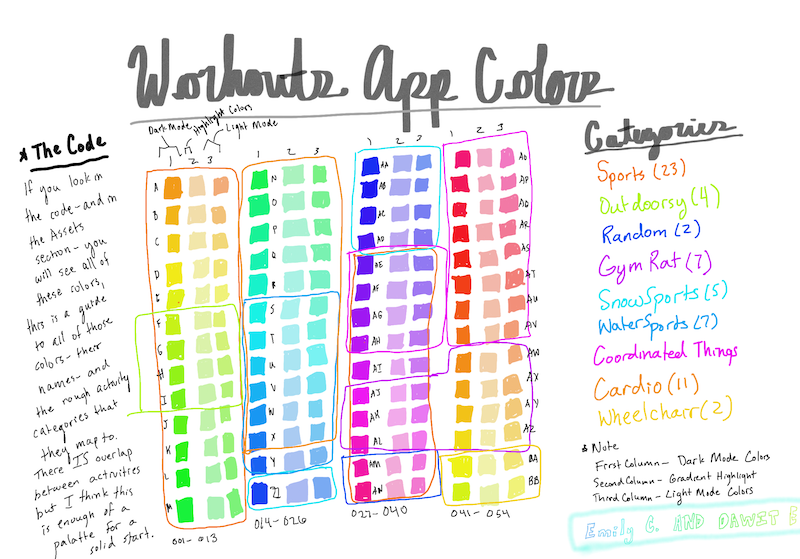 Workouts App Colors
* The Code
If you look in
the code-and in
the Assets
section- you
will see all of
these colors,
this is a guide
to all of those
colors- their
names- and
the rough activity
categories that
they map to.
There IS overlap
between activities
but I think this
is enough of a
palatte for a
solid start.
Dark Mode
Highlight Colors
Light Mode
1 2 3
A
B
C
D
E
F
G
H
I
J
K
L
M
001-013
1 2 3
N
O
P
Q
R
S
T
U
V
W
X
Y
Z
014-026
1 2 3
AA
AB
AC
AD
AE
AF
AG
AH
AI
AJ
AK
AL
AM
AN
027-040
1 2 3
AO
AP
AQ
AR
AS
AT
AU
AV
AW
AX
AY
AZ
BA
BB
041-054
Categories
Sports (23)
Outdoorsy (4)
Random (2)
Gym Rat (7)
SnowSports (5)
WaterSports (7)
Coordinated Things
Cardio (11)
Wheelchair (2)
* Note
First Column- Dark Mode Colors
Second Column- Gradient Highlight
Third Column- Light Mode Colors
Emily C. AND DAWIT E